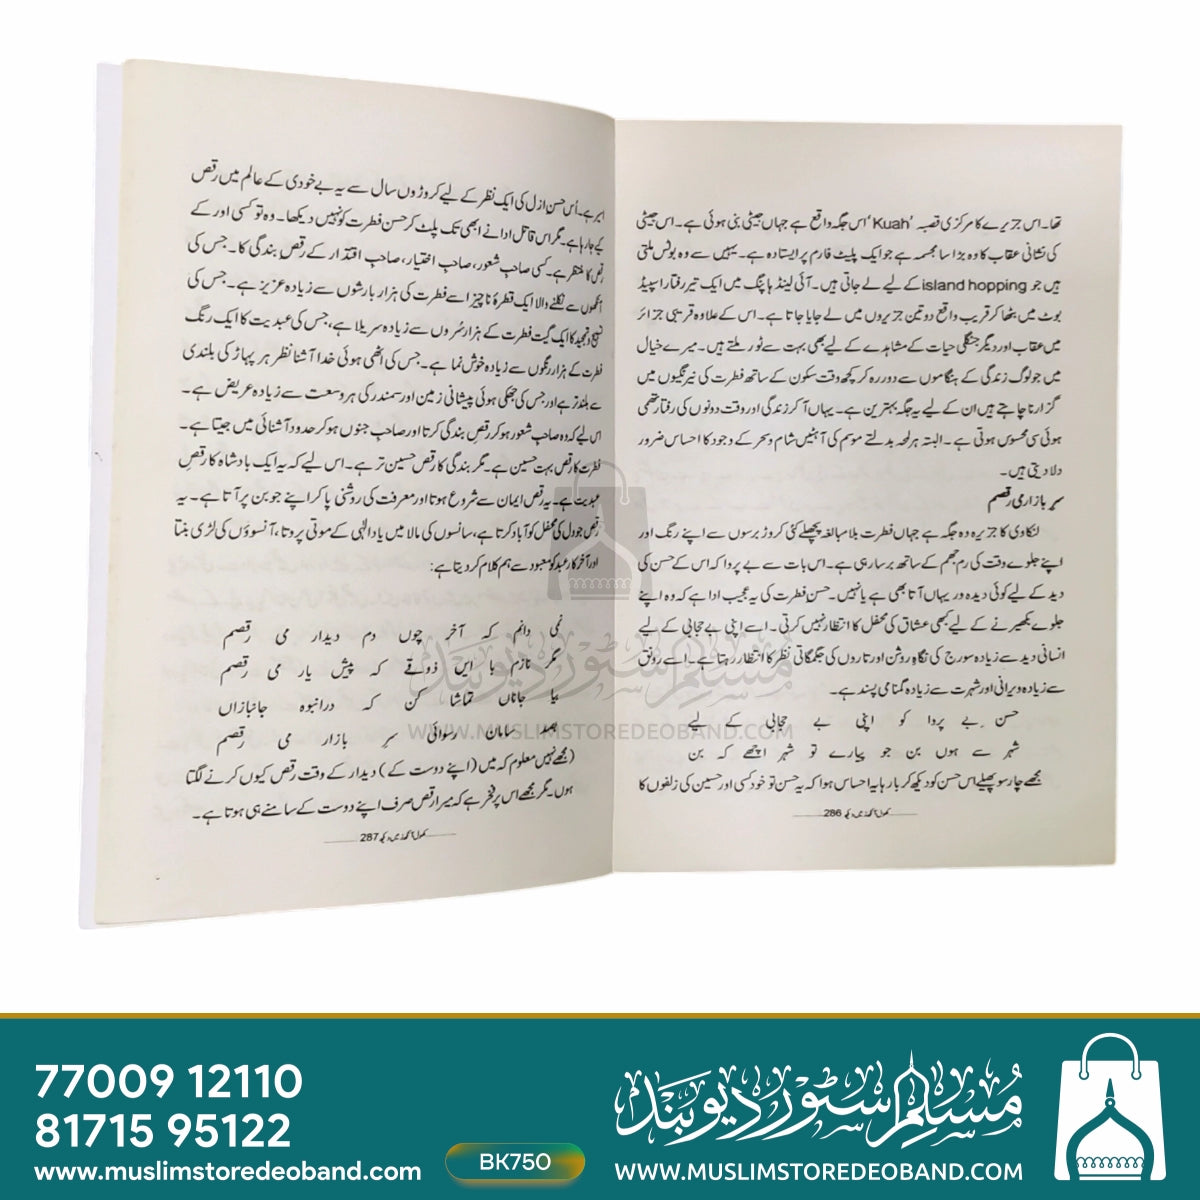 تھا۔ اس جزیرے کا مرکزی قصبہ ’Kuah‘ اس جگہ واقع ہے جہاں جیٹی بنی ہوئی ہے۔ اس جیٹی
کی نشانی عقاب کا وہ بڑا سا مجسمہ ہے جو ایک پلیٹ فارم پر ایستادہ ہے۔ یہیں سے وہ بوٹس ملتی
ہیں جو island hopping کے لیے لے جاتی ہیں۔ آئی لینڈ ہاپنگ میں ایک تیز رفتار اسپیڈ
بوٹ میں بٹھا کر قریب واقع دو تین جزیروں میں لے جایا جاتا ہے۔ اس کے علاوہ قریبی جزائر
میں عقاب اور دیگر جنگلی حیات کے مشاہدے کے لیے بھی بہت سے ٹور ملتے ہیں۔ میرے خیال
میں جو لوگ زندگی کے ہنگاموں سے دور رہ کر کچھ وقت سکون کے ساتھ فطرت کی نیرنگیوں میں
گزارنا چاہتے ہیں ان کے لیے یہ جگہ بہترین ہے۔ یہاں آ کر زندگی اور وقت دونوں کی رفتار تھمی
ہوئی سی محسوس ہوتی ہے۔ البتہ ہر لمحہ بدلتے موسم کی آہٹیں شام و سحر کے وجود کا احساس ضرور
دلا دیتی ہیں۔
سرِ بازار می رقصم
لنکاوی کا جزیرہ وہ جگہ ہے جہاں فطرت بلا مبالغہ پچھلے کئی کروڑ برسوں سے اپنے رنگ اور
اپنے جلوے وقت کی رم جھم کے ساتھ برسا رہی ہے۔ اس بات سے بے پروا کہ اس کے حسن کی
دید کے لیے کوئی دیدہ ور یہاں آتا بھی ہے یا نہیں۔ حسن فطرت کی یہ عجیب ادا ہے کہ وہ اپنے
جلوے بکھیرنے کے لیے کبھی عشاق کی محفل کا انتظار نہیں کرتی۔ اسے اپنی بے حجابی کے لیے
انسانی دید سے زیادہ سورج کی نگاہ روشن اور تاروں کی جگمگاتی نظر کا انتظار رہتا ہے۔ اسے رونق
سے زیادہ ویرانی اور شہرت سے زیادہ گمنامی پسند ہے۔
حسن بے پروا کو اپنی بے حجابی کے لیے
شہر سے ہوں بن جو پیارے تو شہر اچھے کہ بن
مجھے چار سو پھیلے اس حسن کو دیکھ کر بار ہا یہ احساس ہوا کہ یہ حسن تو خود کسی اور حسین کی زلفوں کا
کھول آنکھ زمیں دیکھ 286
اسیر ہے۔ اُس حسن ازل کی ایک نظر کے لیے کروڑوں سال سے یہ بے خودی کے عالم میں رقص
کیے جا رہا ہے۔ مگر اس قاتل ادا نے ابھی تک پلٹ کر حسن فطرت کو نہیں دیکھا۔ وہ تو کسی اور کے
رقص کا منتظر ہے۔ کسی صاحبِ شعور، صاحبِ اختیار، صاحبِ اقتدار کے رقصِ بندگی کا۔ جس کی
آنکھوں سے نکلنے والا ایک قطرۂ ناچیز اسے فطرت کی ہزار بارشوں سے زیادہ عزیز ہے۔ جس کی
تسبیح و تمجید کا ایک گیت فطرت کے ہزار سُروں سے زیادہ سریلا ہے، جس کی عبدیت کا ایک رنگ
فطرت کے ہزار رنگوں سے زیادہ خوش نما ہے۔ جس کی اٹھی ہوئی خدا آشنا نظر ہر پہاڑ کی بلندی
سے بلند تر ہے اور جس کی جھکی ہوئی پیشانی زمین اور سمندر کی ہر وسعت سے زیادہ عریض ہے۔
اس لیے کہ وہ صاحب شعور ہو کر رقصِ بندگی کرتا اور صاحب جنوں ہو کر حدود آشنائی میں جیتا ہے۔
فطرت کا رقص بہت حسین ہے۔ مگر بندگی کا رقص حسین تر ہے۔ اس لیے کہ یہ ایک بادشاہ کا رقصِ
عبدیت ہے۔ یہ رقص ایمان سے شروع ہوتا اور معرفت کی روشنی پا کر اپنے جوبن پر آتا ہے۔ یہ
رقص جو دل کی محفل کو آباد کرتا ہے، سانسوں کی مالا میں یادِ الٰہی کے موتی پروتا، آنسوؤں کی لڑی بنتا
اور آخر کار عبد کو معبود سے ہم کلام کر دیتا ہے:
نمی دانم کہ آخر چوں دم دیدار می رقصم
مگر نازم با ایں ذوقے کہ پیش یار می رقصم
بیا جاناں تماشا کن کہ در انبوہ جانبازاں
بصد سامان رسوائی سرِ بازار می رقصم
(مجھے نہیں معلوم کہ میں (اپنے دوست کے) دیدار کے وقت رقص کیوں کرنے لگتا
ہوں۔ مگر مجھے اس پر فخر ہے کہ میرا رقص صرف اپنے دوست کے سامنے ہی ہوتا ہے۔
کھول آنکھ زمیں دیکھ 287
مسلم سٹور دیوبند
WWW.MUSLIMSTOREDEOBAND.COM
77009 12110
81715 95122
www.muslimstoredeoband.com
BK750
مسلم سٹور دیوبند
WWW.MUSLIMSTOREDEOBAND.COM